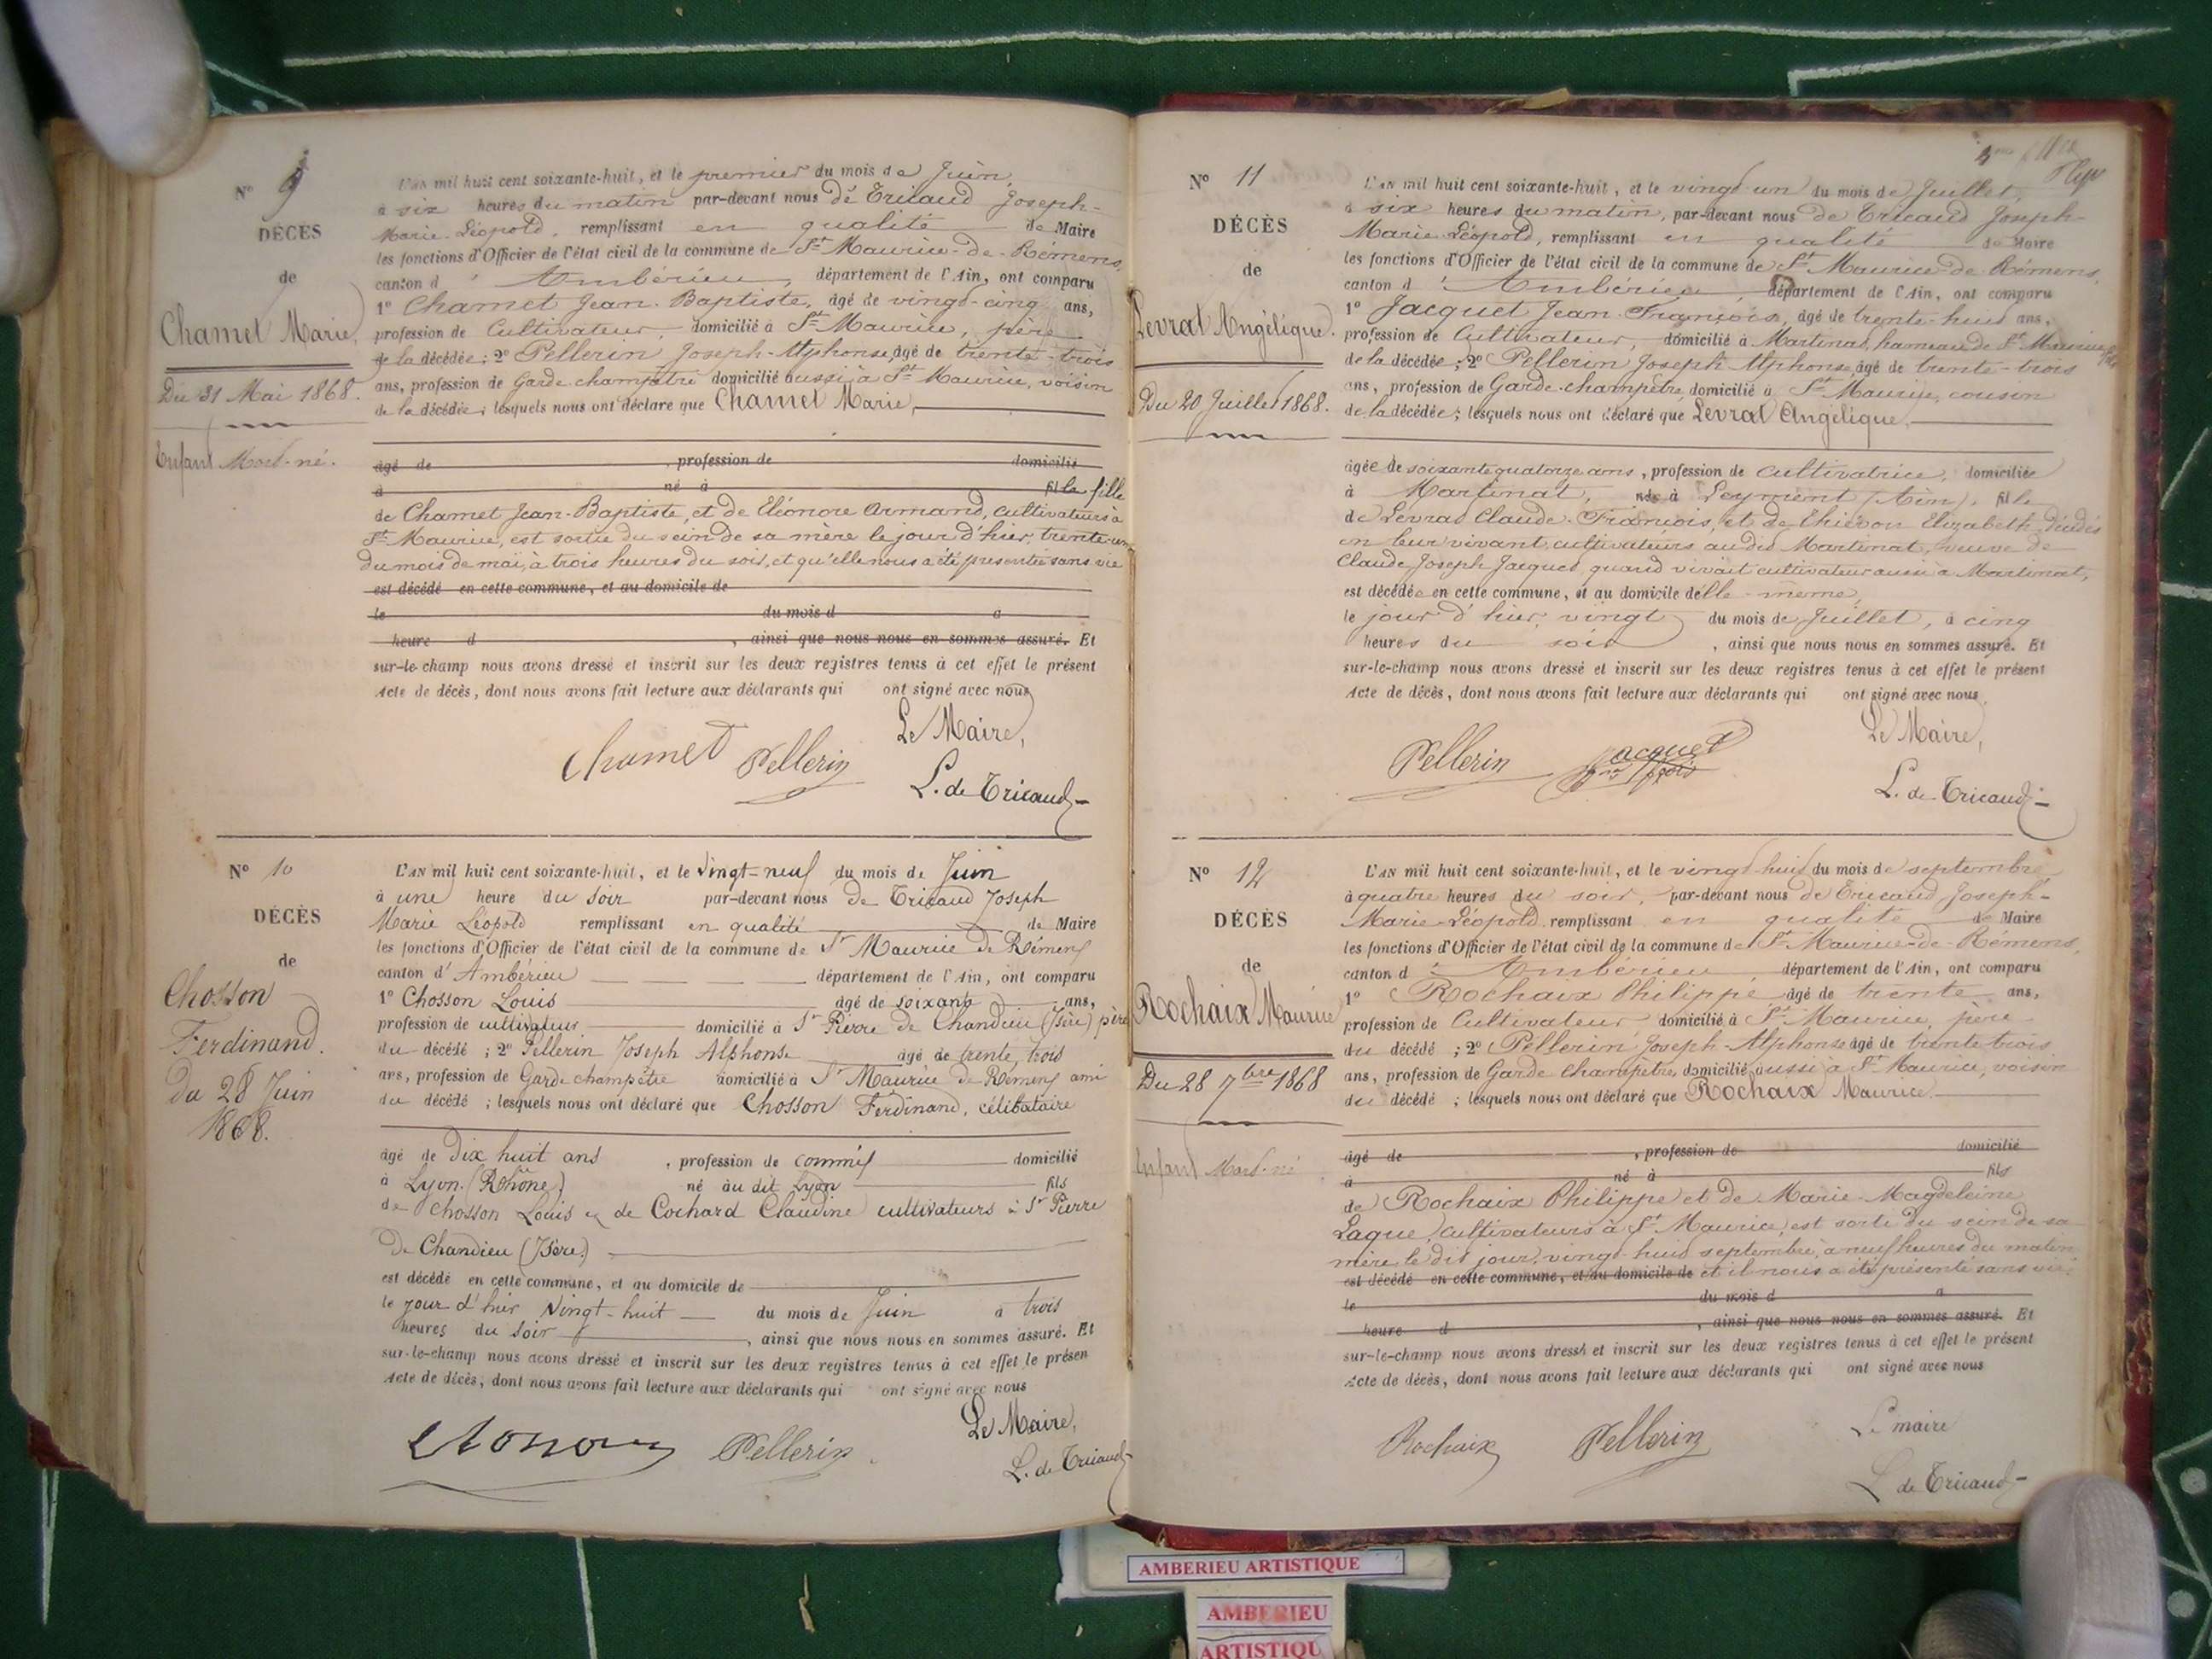 N° 9
DÉCÈS
de
Chamel Marie,
Du 31 Mai 1868.
Enfant Mort-né.
L'AN mil huit cent soixante-huit, et le premier du mois de Juin,
à six heures du matin par-devant nous de Tricaud Joseph-
Marie-Léopold, remplissant en qualité de Maire
les fonctions d'Officier de l'état civil de la commune de St Maurice-de-Rémens,
canton d'Ambérieu, département de l'Ain, ont comparu
1° Chamet Jean-Baptiste, âgé de vingt-cinq ans,
profession de Cultivateur, domicilié à St Maurice, père
de la décédée ; 2° Pellerin Joseph-Alphonse, âgé de trente-trois
ans, profession de Garde-champêtre domicilié aussi à St Maurice, voisin
de la décédée ; lesquels nous ont déclaré que Chamet Marie,
âgé de , profession de domicilié
à né à fille fille
de Chamet Jean-Baptiste, et de Eléonore Armand, cultivateurs à
St Maurice, est sortie du sein de sa mère le jour d'hier, trente-un
du mois de mai, à trois heures du soir, et qu'elle nous a été présentée sans vie
est décédé en cette commune, et au domicile de
le du mois d à
heure d , ainsi que nous nous en sommes assuré. Et
sur-le-champ nous avons dressé et inscrit sur les deux registres tenus à cet effet le présent
Acte de décès, dont nous avons fait lecture aux déclarants qui ont signé avec nous
Le Maire,
Chamet Pellerin
L. de Tricaud
N° 10
DÉCÈS
de
Chosson
Ferdinand.
du 28 Juin
1868.
L'AN mil huit cent soixante-huit, et le vingt-neuf du mois de Juin
à une heure du soir par-devant nous de Tricaud Joseph
Marie Léopold remplissant en qualité de Maire
les fonctions d'Officier de l'état civil de la commune de St Maurice de Rémens
canton d'Ambérieu département de l'Ain, ont comparu
1° Chosson Louis âgé de soixante ans,
profession de cultivateur domicilié à St Pierre de Chandieu (Isère) père
du décédé ; 2° Pellerin Joseph Alphonse âgé de trente trois
ans, profession de Garde champêtre domicilié à St Maurice de Rémens ami
du décédé ; lesquels nous ont déclaré que Chosson Ferdinand, célibataire
âgé de dix huit ans , profession de commis domicilié
à Lyon (Rhône) né au dit Lyon fils
de Chosson Louis et de Cochard Claudine cultivateurs à St Pierre
De Chandieu (Isère)
est décédé en cette commune, et au domicile de
le jour d'hier vingt-huit du mois de Juin à trois
heures du soir , ainsi que nous nous en sommes assuré. Et
sur-le-champ nous avons dressé et inscrit sur les deux registres tenus à cet effet le présen
Acte de décès, dont nous avons fait lecture aux déclarants qui ont signé avec nous
Le Maire,
Pellerin
L. de Tricaud
N° 11
DÉCÈS
de
Levrat Angélique.
Du 20 Juillet 1868.
L'AN mil huit cent soixante-huit, et le vingt-un du mois de Juillet,
à six heures du matin, par-devant nous de Tricaud Joseph-
Marie-Léopold, remplissant en qualité de Maire
les fonctions d'Officier de l'état civil de la commune de St Maurice-de-Rémens,
canton d'Ambérieu, département de l'Ain, ont comparu
1° Jacquet Jean-François, âgé de trente-huit ans,
profession de Cultivateur, domicilié à Martinat, hameau de St Maurice, fils
de la décédée ; 2° Pellerin Joseph-Alphonse, âgé de trente-trois
ans, profession de Garde-champêtre, domicilié à St Maurice, cousin
de la décédée ; lesquels nous ont déclaré que Levrat Angélique,
âgée de soixante quatorze ans, profession de cultivatrice, domiciliée
à Martinat, née à Leyment (Ain), fille
de Levrat Claude-François, et de Elizabeth, décédés
en leur vivant, cultivateurs au dit Martinat, veuve de
Claude Joseph Jacquet, quand vivait cultivateur aussi à Martinat,
est décédée en cette commune, et au domicile d'elle-même,
le jour d'hier, vingt du mois de Juillet, à cinq
heures du soir , ainsi que nous nous en sommes assuré. Et
sur-le-champ nous avons dressé et inscrit sur les deux registres tenus à cet effet le présent
Acte de décès, dont nous avons fait lecture aux déclarants qui ont signé avec nous
Le Maire,
Pellerin Jacquet
L. de Tricaud
N° 12
DÉCÈS
de
Rochaix Maurice
Du 28 7bre 1868
Enfant Mort-né
L'AN mil huit cent soixante-huit, et le vingt-huit du mois de septembre
à quatre heures du soir, par-devant nous de Tricaud Joseph-
Marie-Léopold remplissant en qualité de Maire
les fonctions d'Officier de l'état civil de la commune de St Maurice-de-Rémens,
canton d'Ambérieu, département de l'Ain, ont comparu
1° Rochaix Philippe âgé de trente ans,
profession de Cultivateur domicilié à St Maurice, père
du décédé ; 2° Pellerin Joseph-Alphonse âgé de trente trois
ans, profession de Garde Champêtre, domicilié aussi à St Maurice, voisin
du décédé ; lesquels nous ont déclaré que Rochaix Maurice
âgé de , profession de domicilié
à né à fils
de Rochaix Philippe et de Marie-Magdeleine
Laque, cultivateurs à St Maurice, est sorti du sein de sa
mère le dit jour, vingt-huit septembre, à neuf heures du matin
est décédé en cette commune, et au domicile de et il nous a été présenté sans vie.
le du mois d à
heure d , ainsi que nous nous en sommes assuré. Et
sur-le-champ nous avons dressé et inscrit sur les deux registres tenus à cet effet le présent
Acte de décès, dont nous avons fait lecture aux déclarants qui ont signé avec nous
Le maire
Rochaix Pellerin
L de Tricaud
AMBERIEU ARTISTIQUE
AMBERIEU
ARTISTIQU